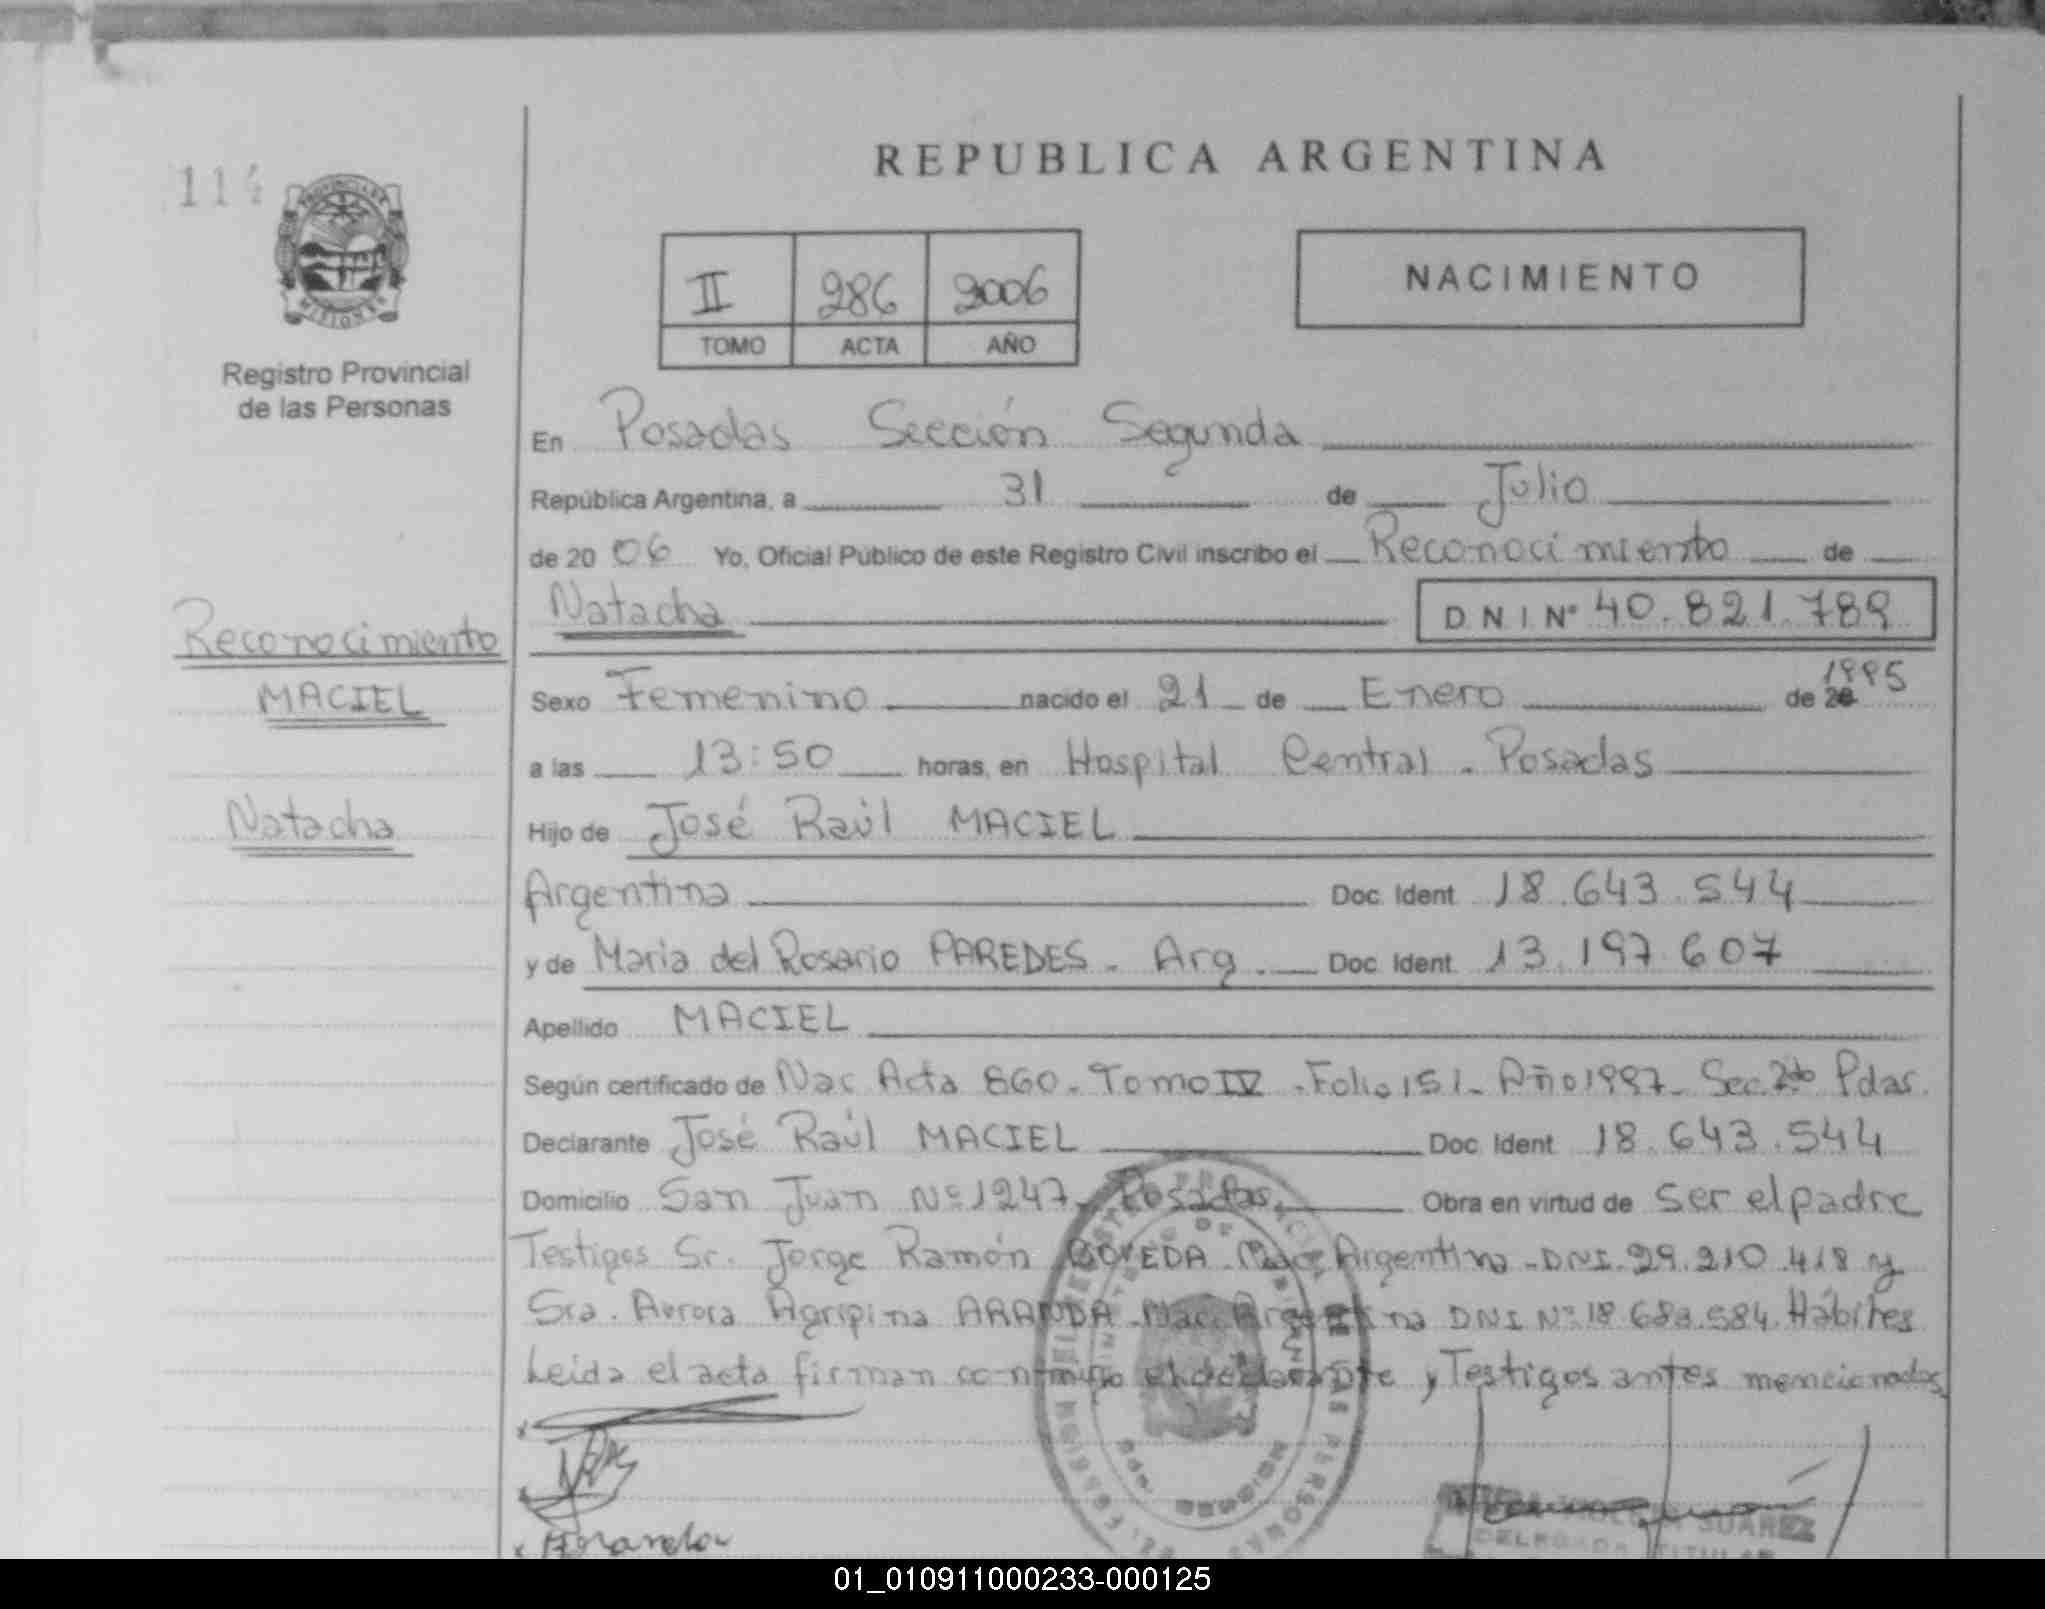 REPUBLICA ARGENTINA
114
PROVINCIA DE
MISIONES
Registro Provincial
de las Personas
II 286 2006
TOMO ACTA AÑO
NACIMIENTO
En Posadas Sección Segunda
República Argentina, a 31 de Julio
de 2006 Yo, Oficial Público de este Registro Civil inscribo el Reconocimiento de
Natacha D N I Nº 40.821.789
Reconocimiento
MACIEL
Natacha
Sexo Femenino nacido el 21 de Enero de 20 1995
a las 13:50 horas, en Hospital Central - Posadas
Hijo de José Raúl MACIEL
Argentina Doc. Ident. 18.643.544
y de Maria del Rosario PAREDES - Arg. Doc. Ident. 13.197.607
Apellido MACIEL
Según certificado de Nac Acta 860 - Tomo IV - Folio 151 - Año 1997 - Sec. 2da Pdas.
Declarante José Raúl MACIEL Doc. Ident. 18.643.544
Domicilio San Juan Nº 1247 - Posadas Obra en virtud de Ser el padre
Testigos Sr. Jorge Ramón Argentina - DNI. 29.210.418 y
Sra. Aurora Agripina ARANDA - Nac. Argentina DNI Nº 18.683.584. Hábiles
Leida el acta firman conmigo el declarante y Testigos antes mencionados
Aranda
SUAREZ
DELEGADA TITULAR
01_010911000233-000125